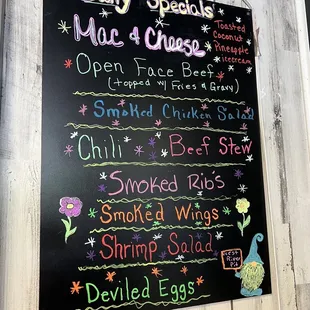 Daily Specials
Mac & Cheese
Toasted
Coconut
Pineapple
icecream
Open Face Beef
(topped w/ Fries & Gravy)
Smoked Chicken Salad
Chili
Beef Stew
Smoked Rib's
Smoked Wings
Shrimp Salad
Deviled Eggs